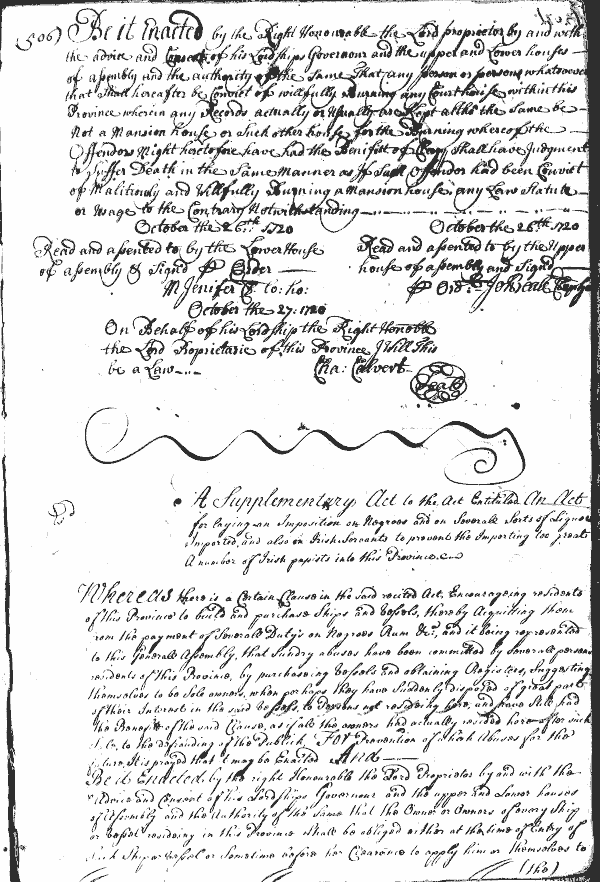 (506) Be it Enacted by the Right Honourable the Lord proprietor by and with
the advice and Consent of his Lordships Governour and the upper and Lower houses
of assembly and the authority of the Same That any person or persons whatsoever
that Shall hereafter be Convict of willfully Burning any Courthouse within this
Province wherein any Records actually or Usually are Kept altho the Same be
Not a Mansion house or Such other house for the Burning whereof the
Offendors Might heretofore have had the Benefitt of Clergy Shall have Judgment
to Suffer Death in the Same Manner as if Such Offendor had been Convict
of Malitiously and Willfully Burning a Mansion house any Law Statute
or Usage to the Contrary Notwithstanding
October the 26th 1720
October the 26th 1720
Read and assented to by the Lower House
of assembly & Signd P Order
M Jenifer Cl: lo: ho:
Read and assented to by the Upper
house of assembly and Signd
P Ordr
October the 27: 1720
On Behalf of his Lordship the Right Honoble
the Lord Proprietarie of this Province I Will this
be a Law
Cha: Calvert
Seal
A Supplementary Act to the Act Entituled An Act
for laying an Imposition on Negroes and on Severall Sorts of Liquors
Imported, and also on Irish Servants to prevent the Importing too great
A number of Irish papists into this Province
Whereas there is a Certain Clause in the said recited Act, Encourageing residents
of this Province to build and purchase Ships and Vessels, thereby Acquitting them
from the payment of Severall Dutys on Negroes Rum &c, and it being represented
to this Generall Assembly, that Sundry abuses have been committed by Severall persons
residents of this Province, by purchaseing Vessells and obtaining Registers, Suggesting
themselves to be Sole owners, when perhaps they have Suddenly disposed of great part
of their Interest in the said Vessells, to persons not resideing here, and have Still had
the Benefit of the said Clause, as if all the owners had actually resided here after such
Sale, to the defrauding of the Publick, For Prevention of which Abuses for the
future, It is prayed that it may be Enacted And
Be it Enacted by the right Honourable the Lord Proprietor by and with the
Advice and Consent of his Lordships Governour and the upper and Lower houses
of Assembly and the Authority of the Same that the Owner or Owners of every Ship
or Vessel resideing in this Province Shall be obliged either at the time of Entry of
Such Ship or Vessel or Sometime before her Clearance to apply him or themselves to
(the)